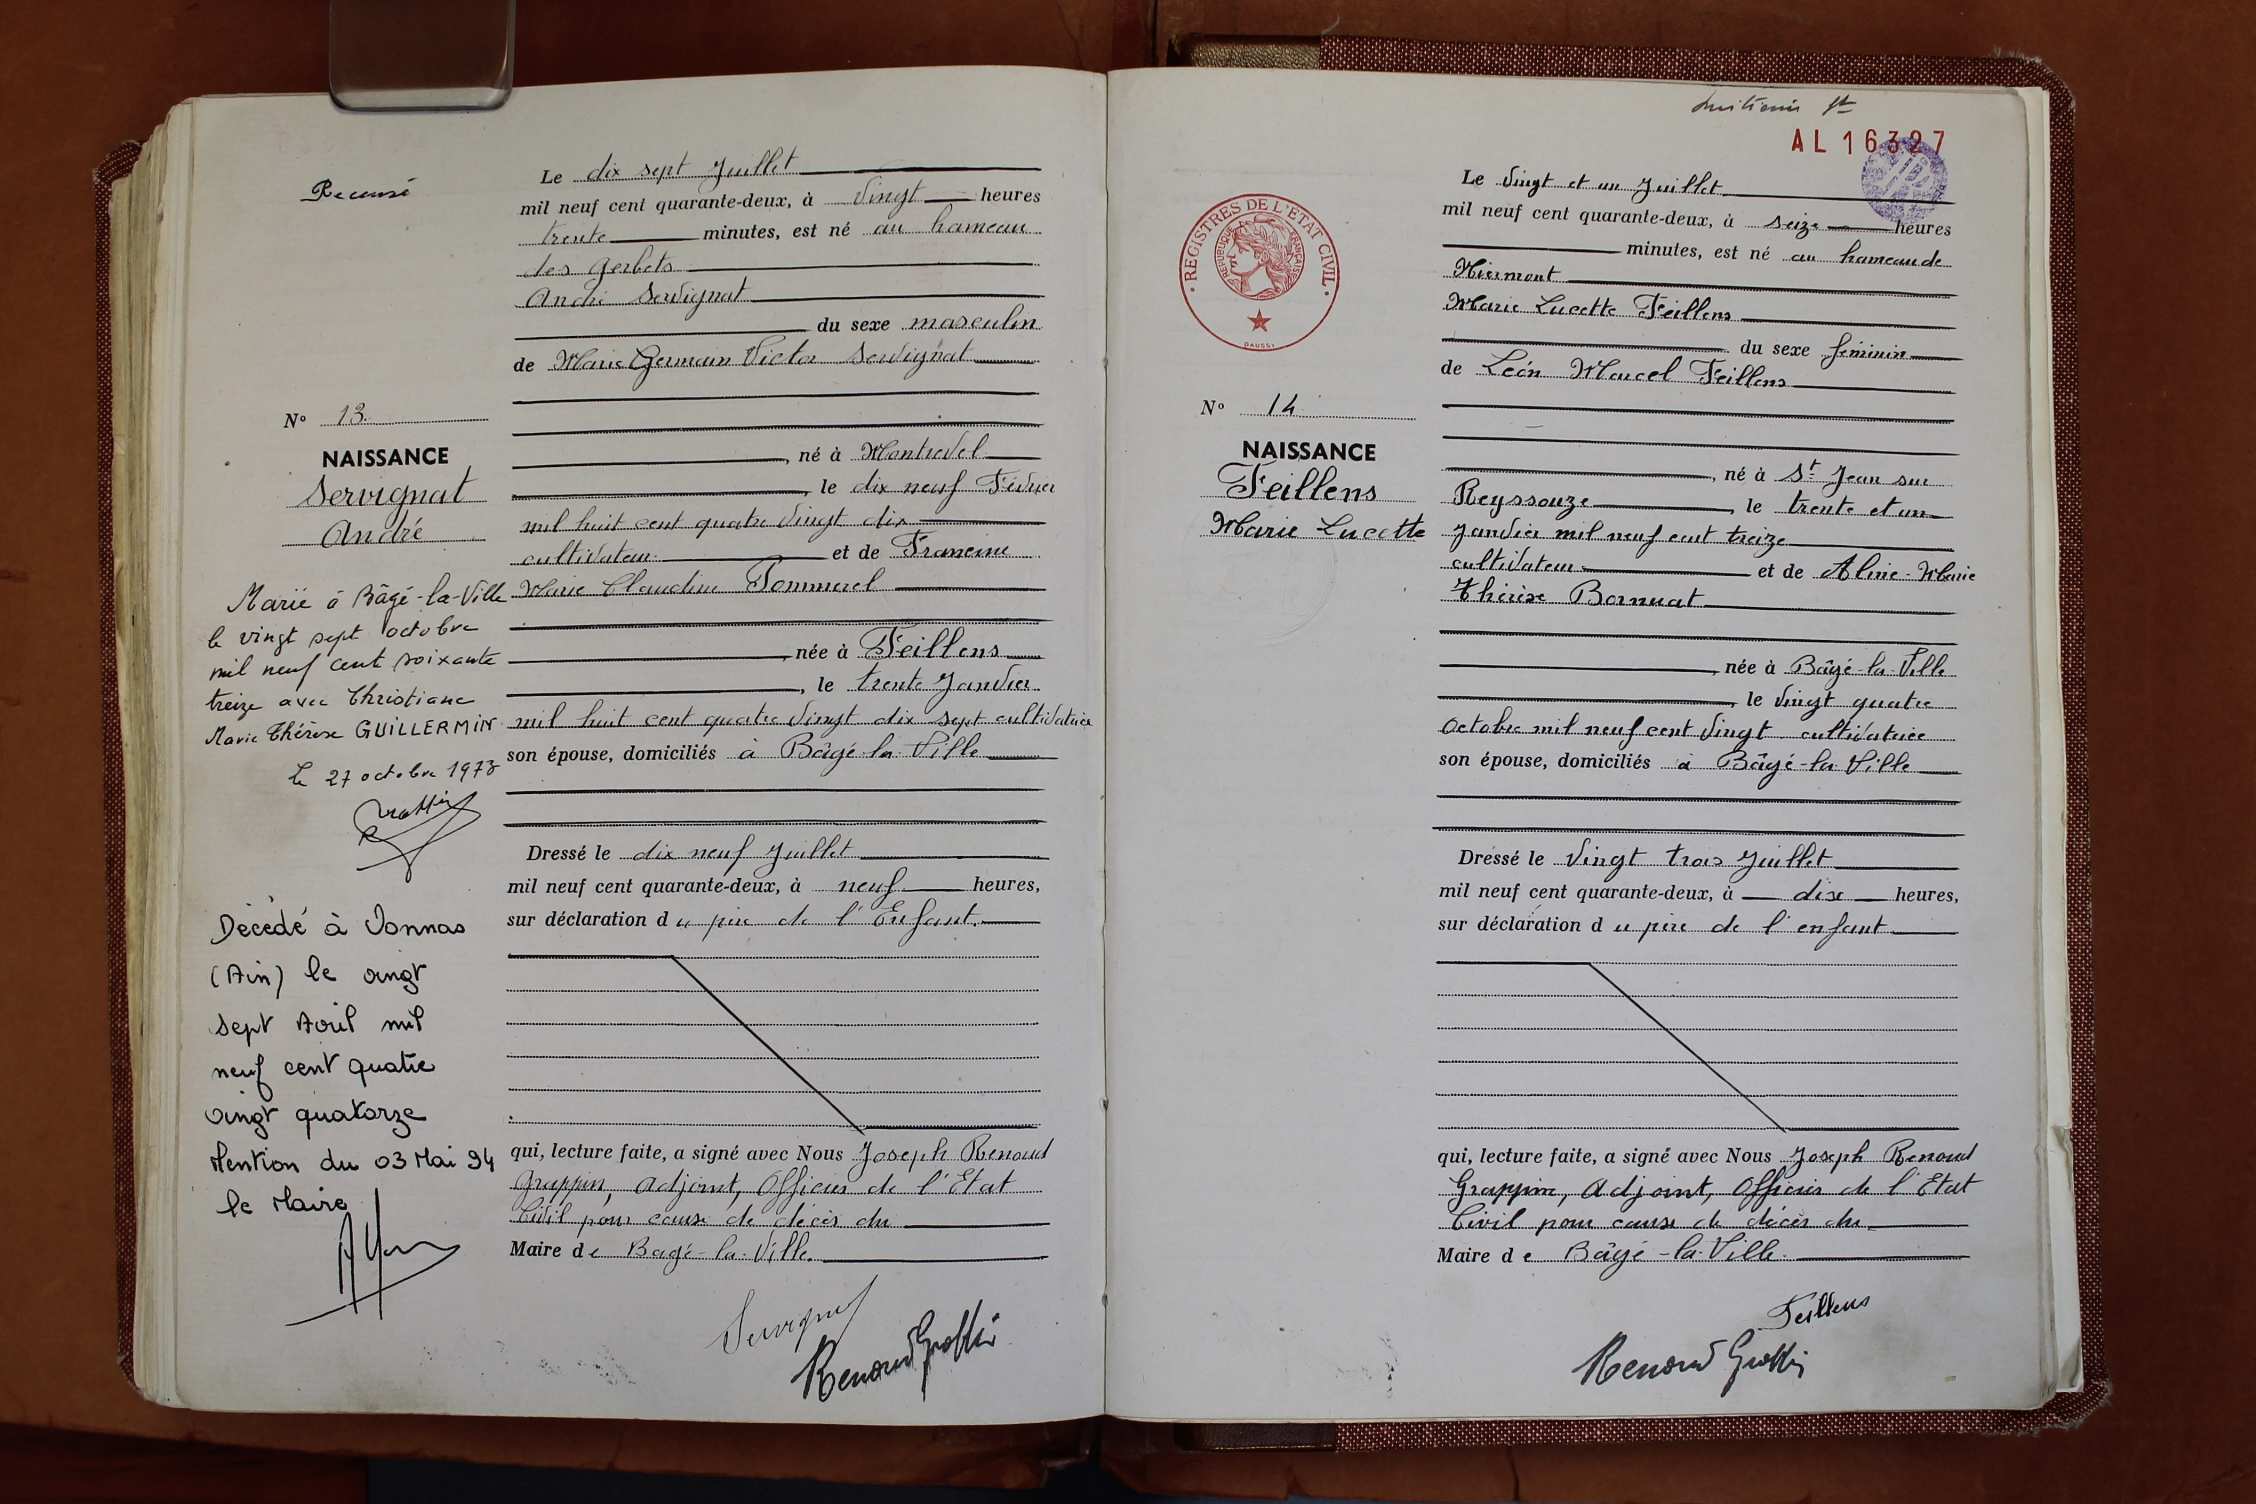 Recensé
Le dix sept Juillet
mil neuf cent quarante-deux, à vingt heures
trente minutes, est né au hameau
des Gerbets
André Servignat
du sexe masculin
de Marie Germain Victor Servignat
né à Montrevel
, le dix neuf Février
mil huit cent quatre vingt dix
cultivateur et de Francine
Marie Claudine Pommerel
née à Feillens
, le trente Janvier
mil huit cent quatre vingt dix sept cultivatrice
son épouse, domiciliés à Bâgé-la-Ville
Dressé le dix neuf Juillet
mil neuf cent quarante-deux, à neuf heures,
sur déclaration du père de l'Enfant.
qui, lecture faite, a signé avec Nous Joseph Renoud
Grappin, Adjoint, Officier de l'Etat
Civil pour cause de décès du
Maire de Bâgé-la-Ville.
Servignat
Renoud Grappin
No 13
NAISSANCE
Servignat
André
Marié à Bâgé-la-Ville
le vingt sept octobre
mil neuf cent soixante
treize avec Christiane
Marie Thérèse GUILLERMIN
Le 27 octobre 1973
Décédé à Vonnas
(Ain) le vingt
sept Avril mil
neuf cent quatre
vingt quatorze
Mention du 03 Mai 94
le Maire
AL 16327
REGISTRES DE L'ÉTAT CIVIL
RÉPUBLIQUE FRANÇAISE
DAUSSY
No 14
NAISSANCE
Feillens
Marie Lucette
Le vingt et un Juillet
mil neuf cent quarante-deux, à seize heures
minutes, est né au hameau de
Miermont
Marie Lucette Feillens
du sexe féminin
de Léon Marcel Feillens
, né à St Jean sur
Reyssouze, le trente et un
Janvier mil neuf cent treize
cultivateur et de Aline-Marie
Thérèse Bornuat
, née à Bâgé-la-Ville
, le vingt quatre
Octobre mil neuf cent vingt cultivatrice
son épouse, domiciliés à Bâgé-la-Ville
Dressé le vingt trois Juillet
mil neuf cent quarante-deux, à dix heures,
sur déclaration du père de l'enfant
qui, lecture faite, a signé avec Nous Joseph Renoud
Grappin, Adjoint, Officier de l'Etat
Civil pour cause de décès du
Maire de Bâgé-la-Ville.
Feillens
Renoud Grappin